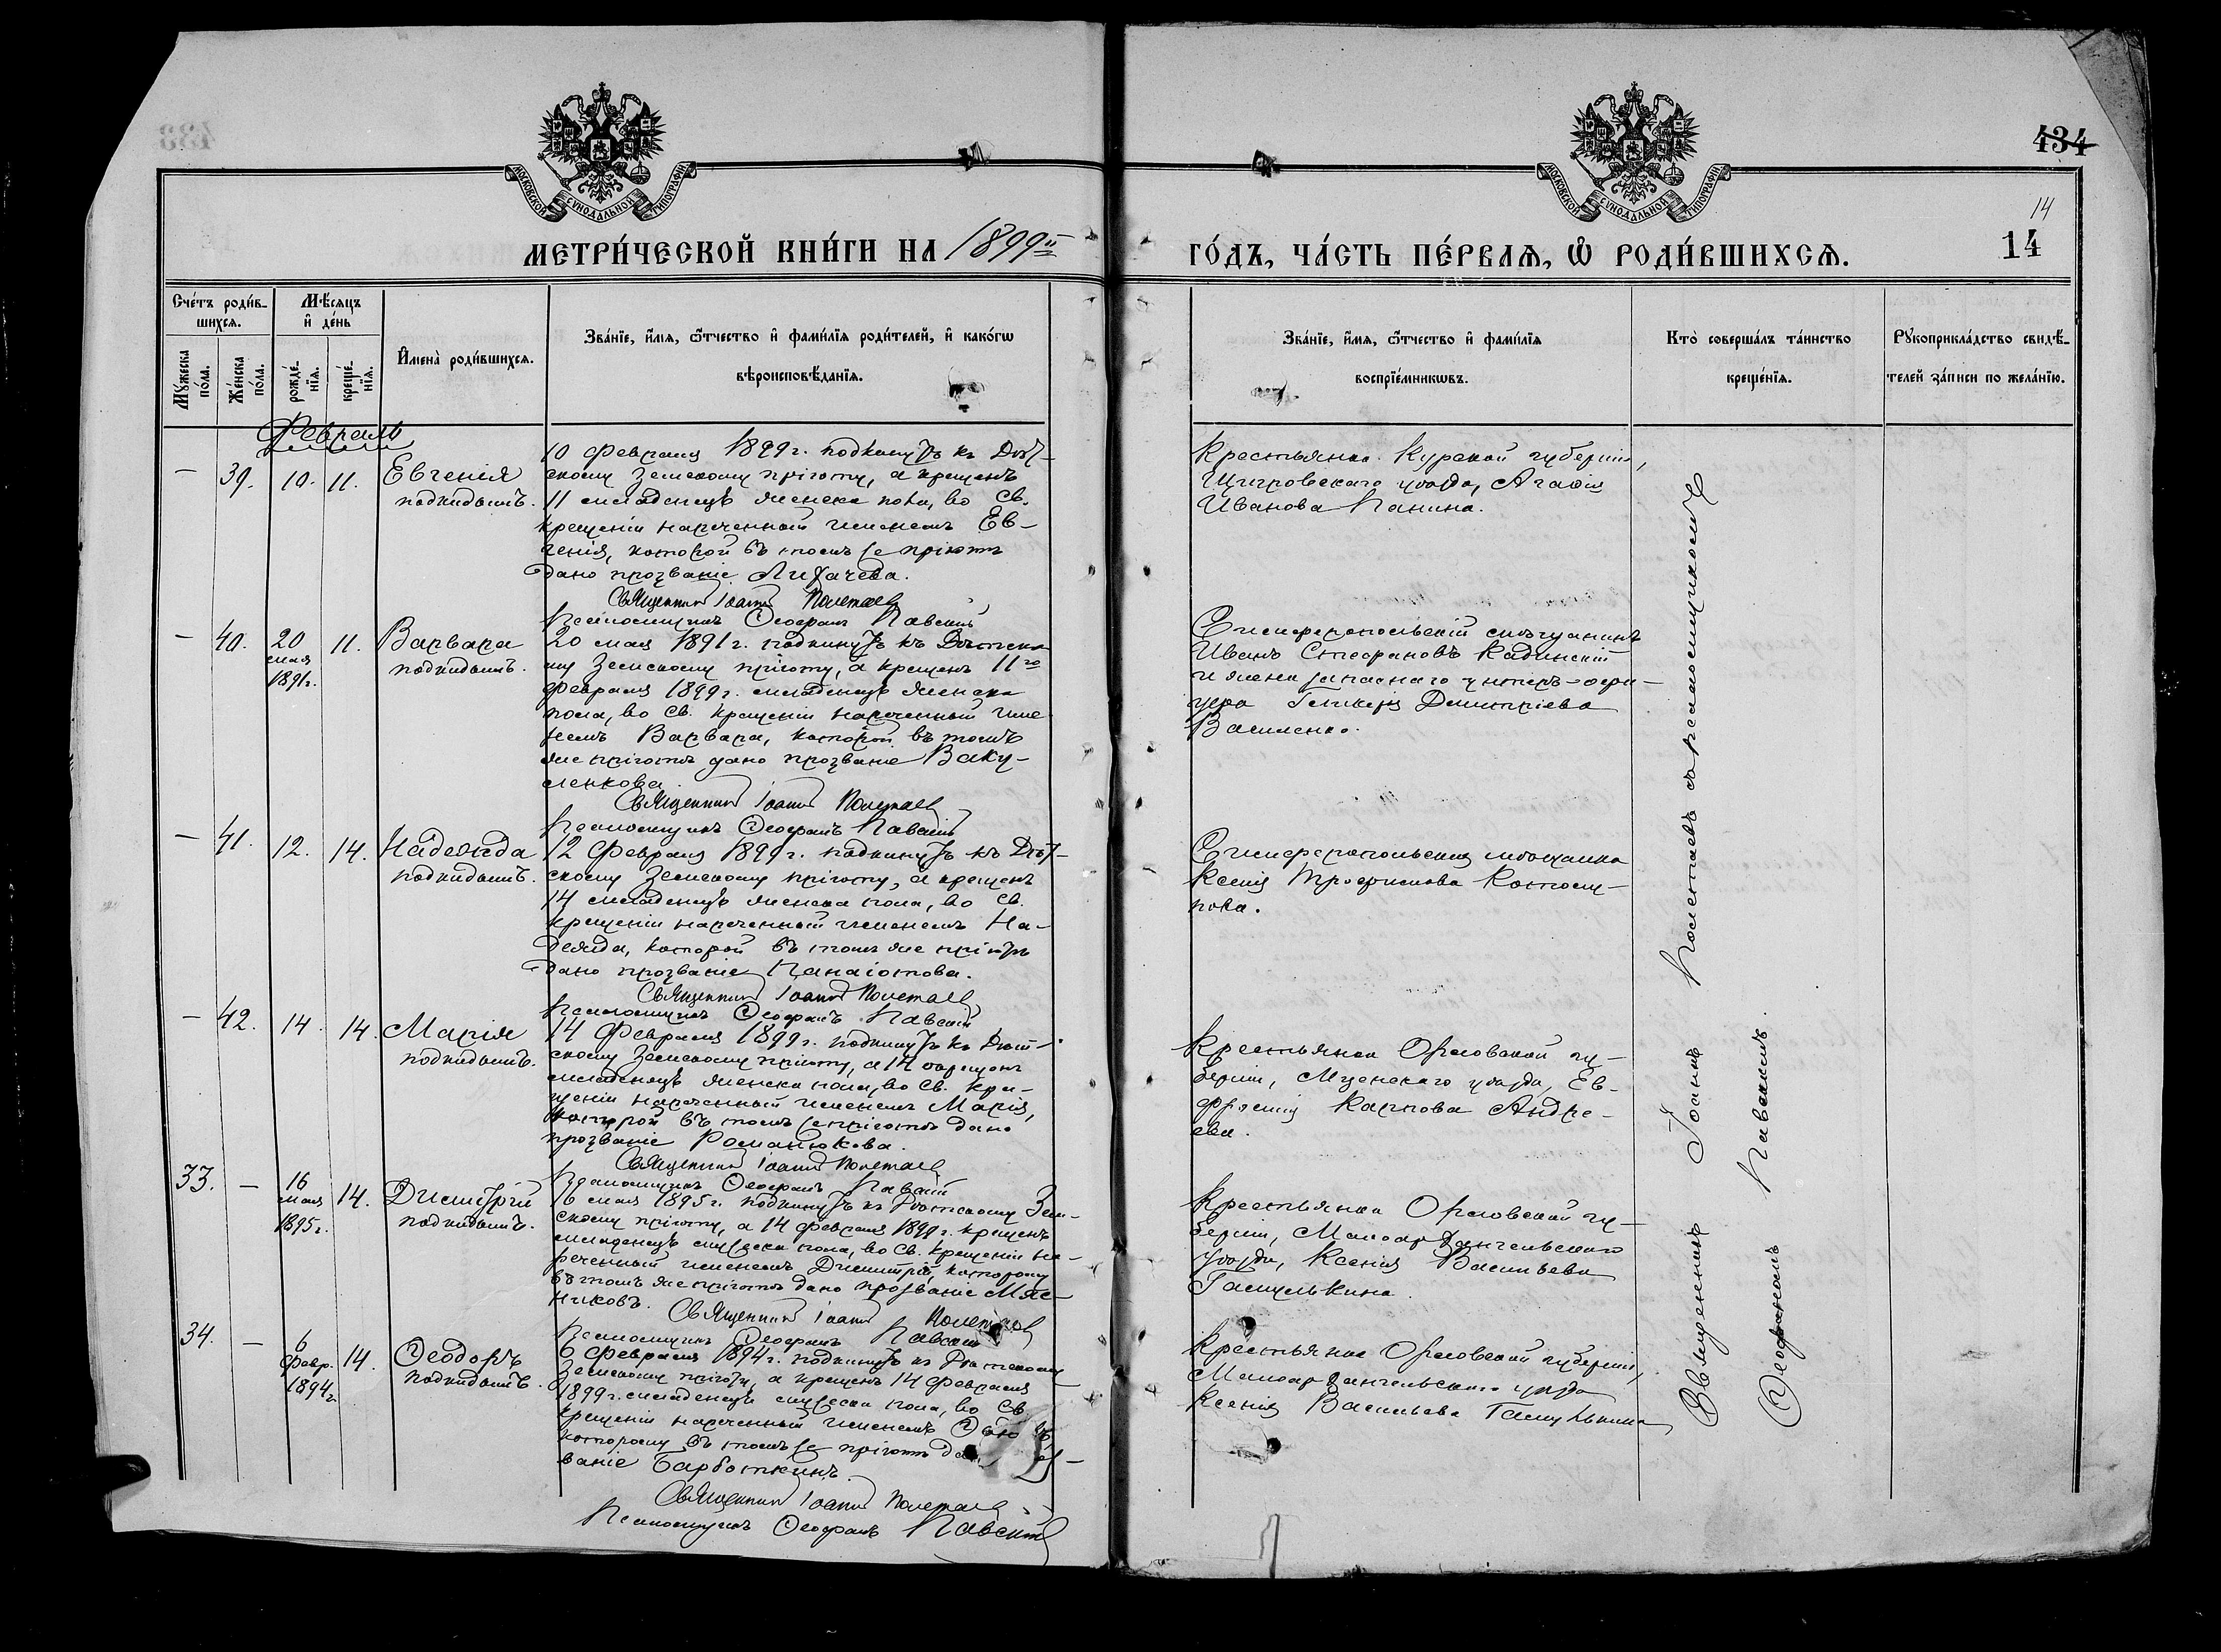 434
МОСКОВСКОЙ СѴНОДАЛЬНОЙ ТИПОГРАФІИ
МОСКОВСКОЙ СѴНОДАЛЬНОЙ ТИПОГРАФІИ
14
МЕТРИ́ЧЕСКОЙ КНИ́ГИ НА 1899й
ГО́ДЪ, ЧА́СТЬ ПЕ́РВАѦ, Ѽ РОДИ́ВШИХСѦ.
14
Сче́тъ роди́в-
шихсѧ.
Мꙋжеска по́ла.
Же́нска по́ла.
Мѣ́сѧцъ
и҆ де́нь
рожде́-
нїѧ.
креще́-
нїѧ.
И҆мена̀ роди́вшихсѧ.
Зва́нїе, и҆́мѧ, ѻ҆́тчество и҆ фами́лїѧ роди́телей, и҆ како́гѡ
вѣроисповѣ́данїѧ.
Зва́нїе, и҆́мѧ, ѻ҆́тчество и҆ фами́лїѧ
воспрїе́мникѡвъ.
Кто̀ соверша́лъ та́инство
креще́нїѧ.
Рꙋкоприкла́дство свидѣ́-
телей за́писи по жела́нїю.
Февраль
— 39. 10. 11. Евгенія
подкидышъ.
10 Февраля 1899 г. подкинутъ къ Дѣт-
скому Земскому пріюту, а крещенъ
11 младенецъ женска пола, во Св.
крещеніи нареченный именемъ Ев-
генія, которой въ томъ же пріютѣ
дано прозваніе Лихачева.
Священникъ Іоаннъ Полетаевъ
Псаломщикъ Ѳеофанъ Павскій
Крестьянка Курской губерніи,
Щигровскаго уѣзда, Агафія
Иванова Панина.
— 40. 20 мая 1891 г. 11. Варвара
подкидышъ.
20 мая 1891 г. подкинутъ къ Дѣтско-
му Земскому пріюту, а крещенъ 11го
февраля 1899 г. младенецъ женска
пола, во Св. крещеніи нареченный име-
немъ Варвара, которой въ томъ
же пріютѣ дано прозваніе Ваку-
ленкова.
Священникъ Іоаннъ Полетаевъ
Псаломщикъ Ѳеофанъ Павскій
Симферопольскій мѣщанинъ
Иванъ Стефановъ Кадинскій
и жена запаснаго унтеръ-офи-
цера Гликерія Димитріева
Василенко.
— 41. 12. 14. Надежда
подкидышъ.
12 Февраля 1899 г. подкинутъ къ Дѣт-
скому Земскому пріюту, а крещенъ
14 младенецъ женска пола, во Св.
крещеніи нареченный именемъ На-
дежда, которой въ томъ же пріютѣ
дано прозваніе Панаіотова.
Священникъ Іоаннъ Полетаевъ
Псаломщикъ Ѳеофанъ Павскій
Симферопольская мѣщанка
Ксенія Трофимова
— 42. 14. 14. Марія
подкидышъ.
14 Февраля 1899 г. подкинутъ къ Дѣт-
скому Земскому пріюту, а 14 крещенъ
младенецъ женска пола, во Св. кре-
щеніи нареченный именемъ Марія,
которой въ томъ же пріютѣ дано
прозваніе Романюкова.
Священникъ Іоаннъ Полетаевъ
Псаломщикъ Ѳеофанъ Павскій
Крестьянка Орловской гу-
берніи, Мценскаго уѣзда, Ев-
фросинія Карпова Андре-
ева.
33. — 16 мая 1895 г. 14. Димитрій
подкидышъ.
16 мая 1895 г. подкинутъ къ Дѣтскому Зем-
скому пріюту, а 14 февраля 1899 г. крещенъ
младенецъ мужеска пола, во Св. крещеніи на-
реченный именемъ Димитрій, которому
въ томъ же пріютѣ дано прозваніе Мяс-
никовъ.
Священникъ Іоаннъ Полетаевъ
Псаломщикъ Ѳеофанъ Павскій
Крестьянка Орловской гу-
берніи, Малоархангельскаго
уѣзда, Ксенія Васильева
Гамулькина.
34. — 6 Февр. 1894 г. 14. Ѳеодоръ
подкидышъ.
6 Февраля 1894 г. подкинутъ къ Дѣтскому
Земскому пріюту, а крещенъ 14 февраля
1899 г. младенецъ мужеска пола, во Св.
крещеніи нареченный именемъ
которому въ томъ же пріютѣ
ваніе Барботкинъ.
Священникъ Іоаннъ Полетаевъ
Псаломщикъ Ѳеофанъ Павскій
Крестьянка Орловской губерніи,
Малоархангельскаго уѣзда
Ксенія Васильева Гамулькина
Священникъ Іоаннъ Полетаевъ съ псаломщикомъ
Ѳеофаномъ Павскимъ.